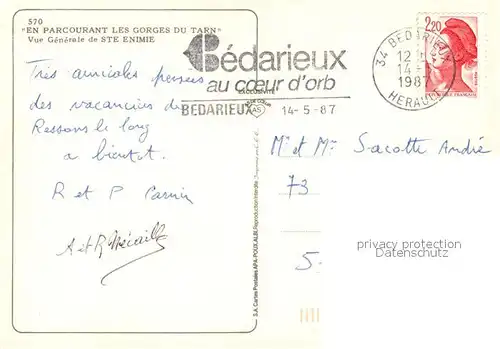 570
"EN PARCOURANT LES GORGES DU TARN"
Vue Générale de STE ENIMIE
Bédarieux
au cœur d'orb
BEDARIEUX 14-5-87
34 BEDARIEUX
12
14-5
1987
HERAULT
2,20
Très amicales pensées
des vacanciers de
Ressons le long
a bientot.
R et P
A et R
Mr et Mme Sacotte André
73
5
S.A. Cartes Postales APA-POUX ALBI. Reproduction Interdite
privacy protection
Datenschutz